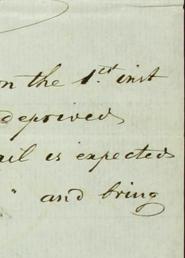 on the 1st inst
deprived
ail is expected
" and bring